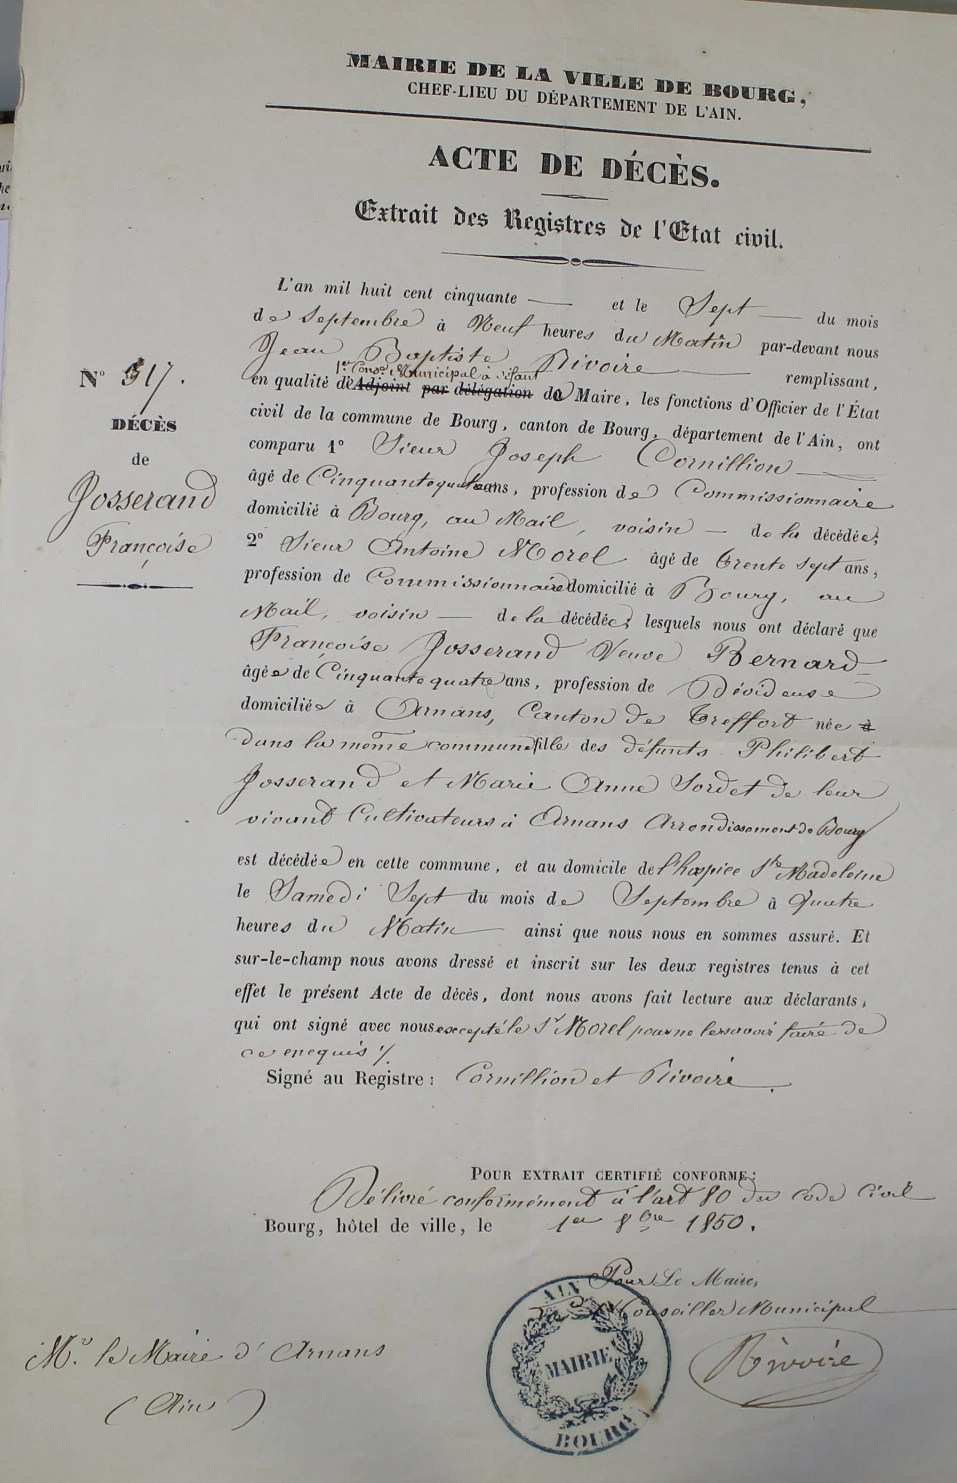 MAIRIE DE LA VILLE DE BOURG,
CHEF-LIEU DU DÉPARTEMENT DE L'AIN.
ACTE DE DÉCÈS.
Extrait des Registres de l'Etat civil.
L'an mil huit cent cinquante — et le Sept — du mois
de Septembre à Neuf heures du Matin par-devant nous
Jean Baptiste Rivoire — remplissant,
1er Conser Municipal à défaut
en qualité de Adjoint par délégation de Maire, les fonctions d'Officier de l'État
civil de la commune de Bourg, canton de Bourg, département de l'Ain, ont
comparu 1° Sieur Joseph Cornillion —
âgé de Cinquante quatre ans, profession de Commissionnaire
domicilié à Bourg, au Mail, voisin — de la décédée;
2° Sieur Antoine Morel âgé de trente sept ans,
profession de Commissionnaire domicilié à Bourg, au
Mail, voisin — de la décédée; lesquels nous ont déclaré que
Françoise Josserand Veuve Bernard
âgée de Cinquante quatre ans, profession de Dévideuse
domiciliée à Arnans, Canton de Treffort née à
dans la même commune fille des défunts Philibert
Josserand et Marie Anne Sordet de leur
vivant Cultivateurs à Arnans Arrondissement de Bourg
est décédée en cette commune, et au domicile de l'hospice Ste Madeleine
le Samedi Sept du mois de Septembre à Quatre
heures du Matin — ainsi que nous nous en sommes assuré. Et
sur-le-champ nous avons dressé et inscrit sur les deux registres tenus à cet
effet le présent Acte de décès, dont nous avons fait lecture aux déclarants,
qui ont signé avec nous excepté le Sr Morel pour ne le savoir faire de
ce enequis ./.
Signé au Registre: Cornillion et Rivoire.
N° 317.
DÉCÈS
de
Josserand
Françoise
POUR EXTRAIT CERTIFIÉ CONFORME:
Délivré conformément à l'art 80 du code Civil
Bourg, hôtel de ville, le 1er 8bre 1850.
Pour Le Maire,
Conseiller Municipal
Rivoire
AIN
MAIRIE
BOURG
Mr. le Maire d'Arnans
(Ain)